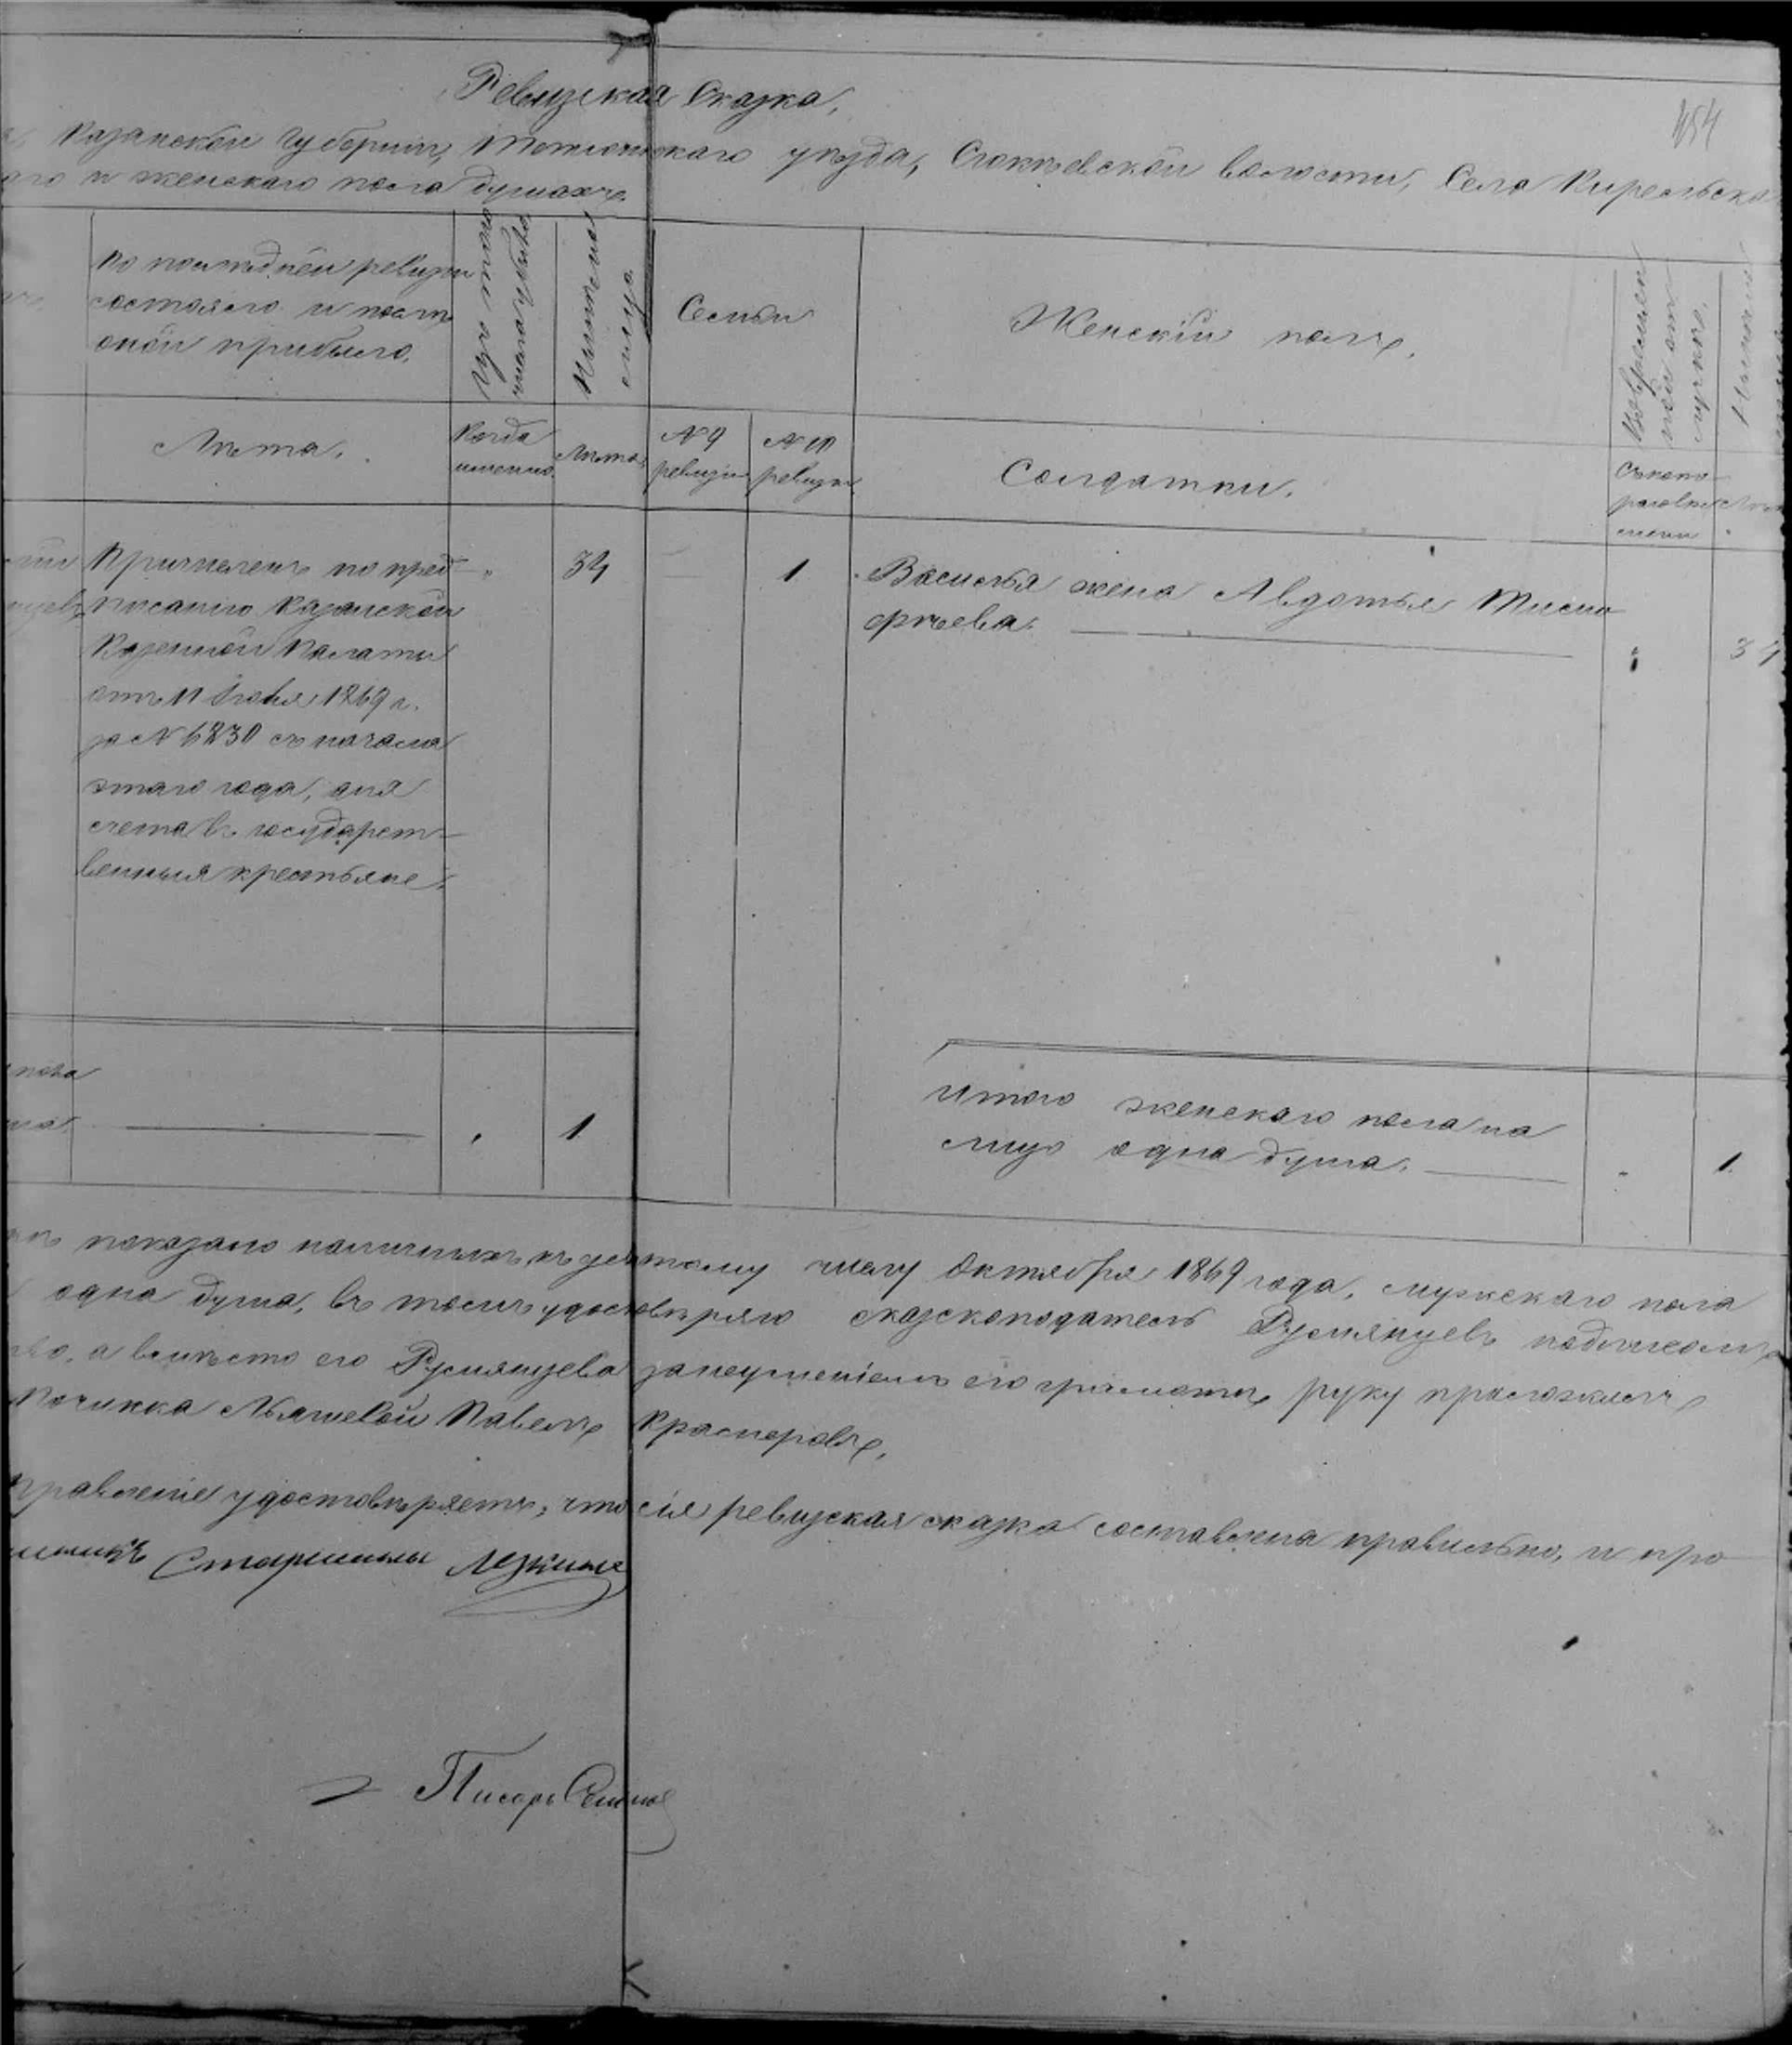 Ревизская Сказка,
154
Казанской Губерніи, Тетюшскаго уѣзда, Сюкѣевской волости, Села Кирельска
аго и женскаго пола душахъ.
По послѣдней ревизіи
состояло и послѣ
оной прибыло.
Изъ того
числа убыло
Налицо
Семьи
Женскій полъ.
Лѣта.
Когда
именно.
Лѣта.
№ 9
ревизіи
№ 10
ревизіи
Солдатки.
Причисленъ по пред-
писанію Казанской
Казенной Палаты
отъ 11 Іюня 1869 г.
за № 6830 съ начала
этаго года, для
счета въ государст-
венныя крестьяне.
34
1
Василья жена Авдотья Тимо
фѣева.
34
1
Итого женскаго пола на
лицо одна душа.
1.
показано наличныхъ къ девятому числу Октября 1869 года, мужскаго пола
одна душа, въ томъ удостовѣряю сказкоподатель Румянцевъ
а вмѣсто его Румянцева за неумѣніемъ его грамотѣ, руку приложилъ
Починка Павелъ
правленіе удостовѣряетъ, что сія ревизская сказка составлена правильно, и про
Старшины
Писарь